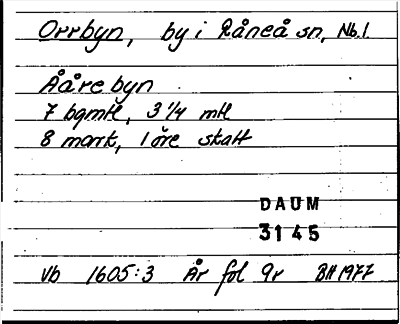 Orrbyn, by i Råneå sn, Nb.l.
Åårebyn
7 bgmtl, 3 1/4 mtl
8 mark, 1 öre skatt
DAUM
3145
Vb 1605:3 År fol 9r BH 1977